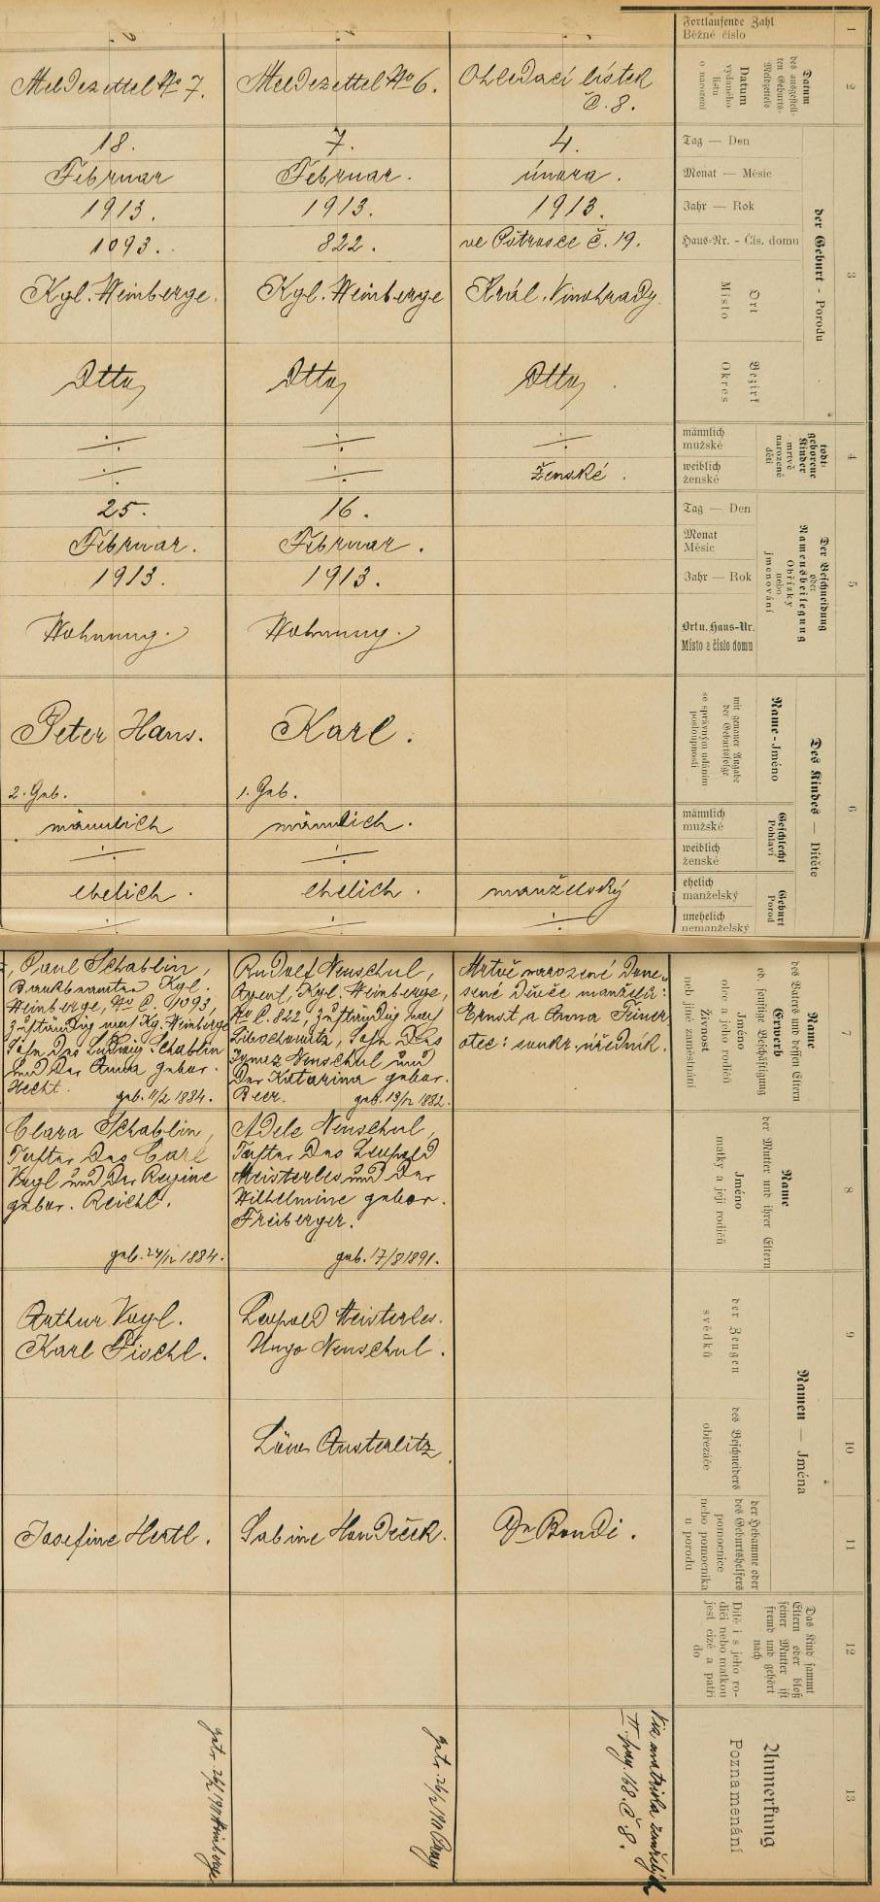 Fortlaufende Zahl
Běžné číslo
1
Meldezettel No 7.
Meldezettel No 6.
Ohledací lístek
č. 8.
Datum
des ausgestell-
ten Geburts-
Meldzettels
Datum
vydaného
listu
o narození
2
18.
7.
4.
Tag — Den
Februar
Februar.
února.
Monat — Měsíc
1913.
1913.
1913.
Jahr — Rok
1093.
822.
ve Pštrosce č. 19.
Haus-Nr. - Čís. domu
Kgl. Weinberge.
Kgl. Weinberge
Král. Vinohrady
Ort
Místo
Dtto
Dtto
Dtto
Bezirk
Okres
der Geburt - Porodu
3
männlich
mužské
ženské.
weiblich
ženské
todt-
geborene
Kinder
mrtvě
narozené
děti
4
25.
16.
Tag — Den
Februar.
Februar.
Monat
Měsíc
1913.
1913.
Jahr — Rok
Wohnung.
Wohnung.
Ort u. Haus-Nr.
Místo a číslo domu
Der Beschneidung
oder
Namensbeilegung
Obřízky
nebo
jmenování
5
Peter Hans.
Karl.
2. Geb.
1. Geb.
Name - Jméno
mit genauer Angabe
der Geburtsfolge
se správným udáním
posloupnosti
männlich
männlich.
männlich
mužské
weiblich
ženské
Geschlecht
Pohlaví
ehelich.
ehelich.
manželský
ehelich
manželský
unehelich
nemanželský
Geburt
Porod
Des Kindes — Dítěte
6
Paul Schablin,
Bankbeamter Kgl.
Weinberge, No C. 1093,
zuständig nach Kg. Weinberge
Sohn des Ludwig Schablin
und der Anna gebor.
Hecht.
geb. 11/2 1884.
Rudolf Neuschul,
Agent, Kgl. Weinberge,
No C. 822, zuständig nach
Sohn des
Ignaz Neuschul und
der Katarina gebor.
Beer.
geb. 13/12 1882.
Mrtvě narozené done-
sené děvče manželů:
Ernst a Anna
otec: soukr. úředník.
Name
des Vaters und dessen Eltern
Erwerb
od. sonstige Beschäftigung
Jméno
otce a jeho rodičů
Živnost
neb jiné zaměstnání
7
Clara Schablin,
Tochter des Carl
Vogl und der Regine
gebor. Reichl.
geb. 24/12 1884.
Adele Neuschul,
Tochter des Leopold
Meisterles und der
Wilhelmine gebor.
Freiberger.
geb. 17/8 1891.
Name
der Mutter und ihrer Eltern
Jméno
matky a její rodičů
8
Arthur Vogl.
Karl Fischl.
Leopold Meisterles.
Hugo Neuschul.
der Zeugen
svědků
9
Löw Austerlitz
des Beschneiders
obřezáče
10
Namen — Jména
Josefine Hertl.
Sabine Hondíček.
Dr Bondi.
der Hebamme oder
des Geburtshelfers
pomocnice
nebo pomocníka
u porodu
11
Das Kind sammt
Eltern oder bloß
seiner Mutter ist
fremd und gehört
nach
Dítě i s jeho ro-
diči nebo matkou
jest cizé a patří
do
12
Vis matrika zemřelých
II. pag. 168. č 8.
Anmerkung
Poznamenání
13